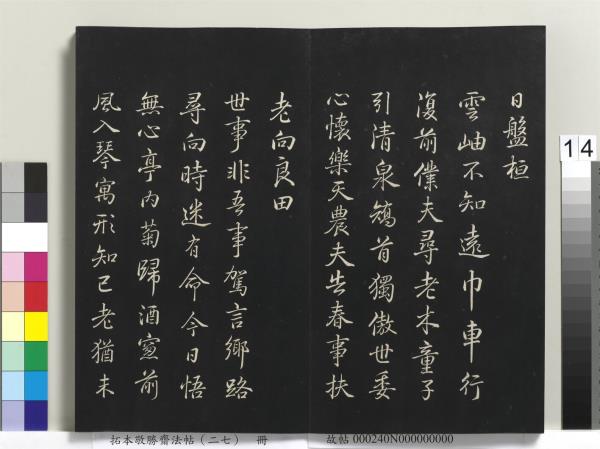 日盤桓
雲岫不知遠巾車行
復前僕夫尋老木童子
引清泉矯首獨傲世委
心懷樂天農夫告春事扶
老向良田
世事非吾事駕言鄉路
尋向時迷有命今日悟
無心亭内菊歸酒窓前
風入琴寓形知已老猶未
14
拓本敬勝齋法帖(二七) 冊
故帖 000240N000000000